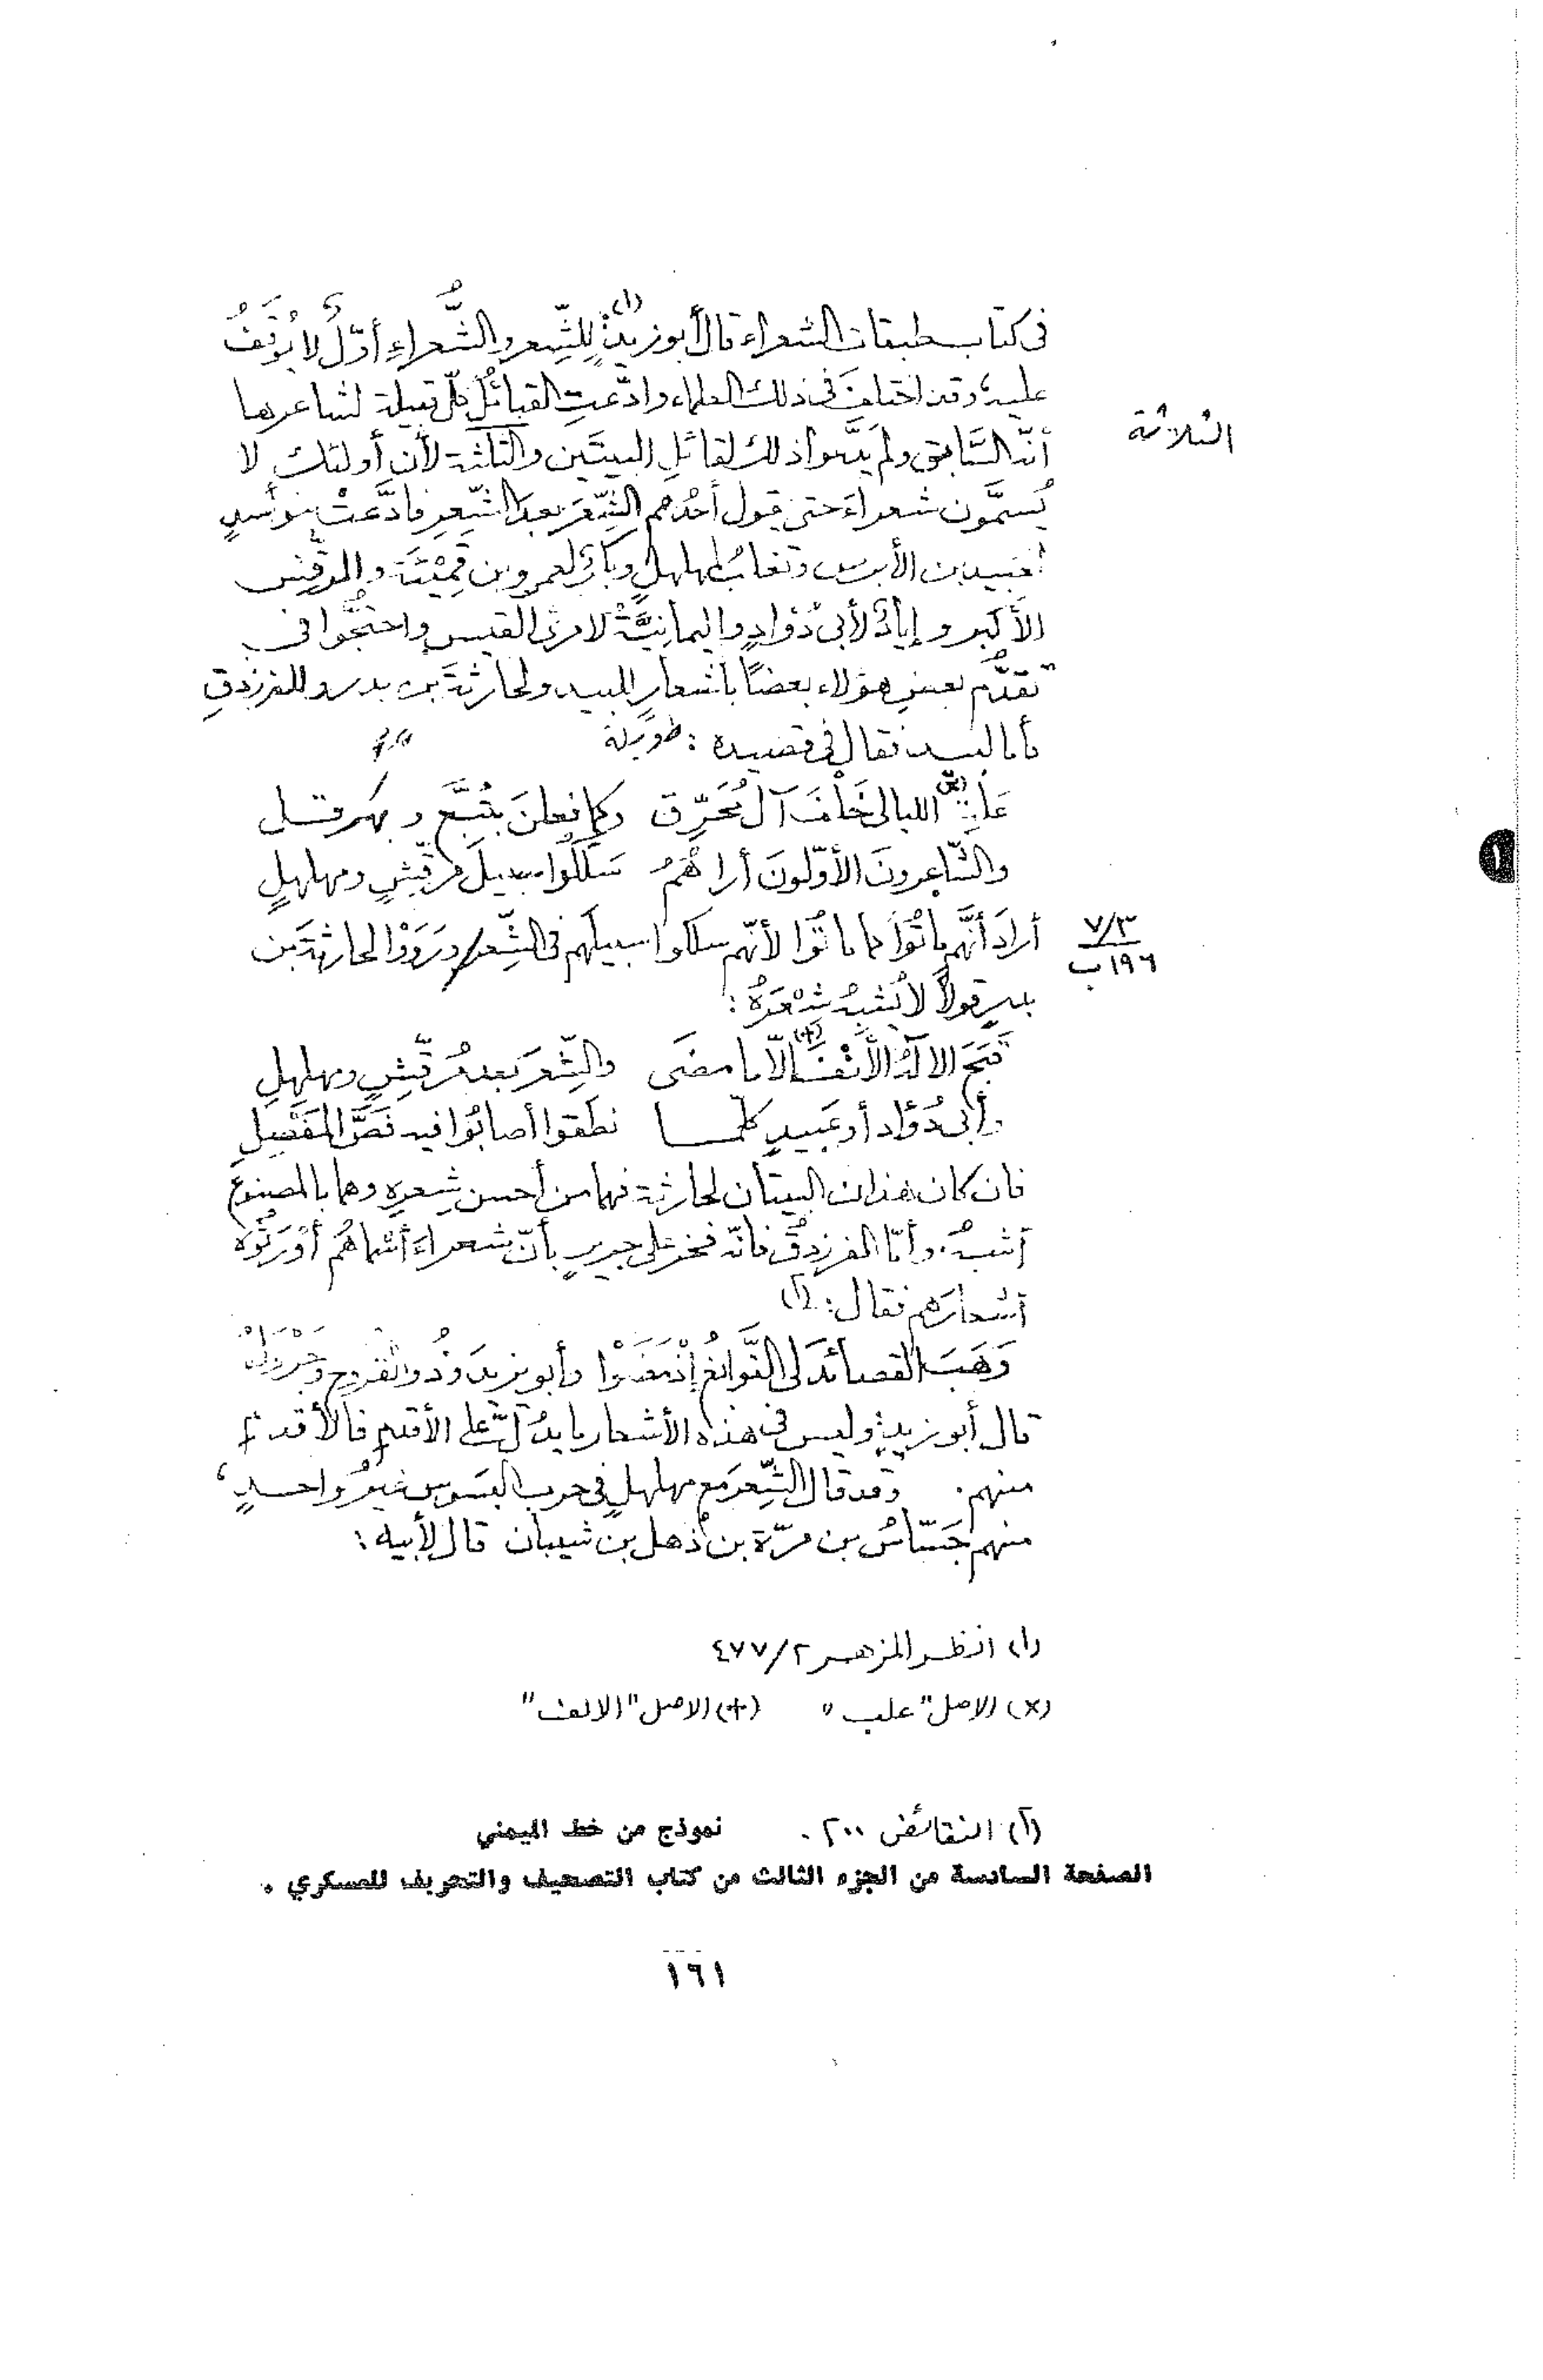 فى كتاب طبقات الشعراء قال أبو زيد (١) لِلشِّعر والشُّعراءِ أوّلٌ لا يُوقَفُ
عليه، وقد اختلفَ فى ذلك العلماء وادّعتِ القبائلُ كلّ قبيلة لشاعرها
أنّه السَّابق ولم يَدَّعوا ذلك لقائلِ البيتَين والثلاثة لأن أولئك لا
الثلاثة
يُسمَّون شعراءَ حتى يقول أحدُهم الشِّعرَ بعد الشِّعرِ فادَّعتْ بنو أسدٍ
لعبيد بن الأبرص وتغلبُ لمهلهلٍ وبكرٌ لعمرو بن قَمِيْئَةَ والمرقِّش
الأكبر وإيادٌ لأبى دُؤادٍ واليمانِيَّةُ لامرئ القيس واحتجُّوا فى
تقدُّم بعضِ هؤلاء بعضًا بأشعارٍ للبيد ولحارثةَ بن بدر وللفرزدقِ
فأما لبيد فقال فى قصيدة : طويلة
اللبالى خَلْفَ آلَ مُحَرِّقٍ وكما فعلنَ بتُبَّعٍ وبهرقل
والشّاعرونَ الأوّلونَ أراهُمُ سَلَكُوا سبيلَ مرقِّشٍ ومهلهلِ
أرادَ أنَّهم ماتُوا كما ماتُوا لأنّهم سلكوا سبيلَهم فى الشِّعر/ ورَوَوْا لحارثةَ بن
٧/٣
١٩٦ ب
بدرٍ قولاً لا يُشبِهُ شِعْرَهُ :
قَبَحَ الالهُ (+) إلّا ما مضَى والشِّعرَ بعد مُرقِّشٍ ومهلهلِ
وأبى دُؤاد أو عَبيدٍ كلّمـا نطَقوا أصابُوا فيه نَصَّ المَفْصِلِ
فان كان هذان البيتان لحارثة فهما من أحسن شِعرِهِ وهما بالمصنوع
أشبهُ. وأمّا الفرزدقُ فانّه فخر على جريرٍ بأنّ شعراءَ أسماهُم أوْرَثُوهُ
أشعارَهم فقال: (أ)
وَهَبَ القصائدَ لى النَّوابغُ إذْ مَضَوْا وأبو يزيدَ وذُو القروحِ وجَرْوَلُ
قال أبو زيدٍ وليس فى هذه الأشعار ما يدُلّ على الأقدمِ فالأقدم
منهم. وقد قال الشِّعرَ مع مهلهلٍ فى حرب البَسوس غيرُ واحــدٍ،
منهم جَسّاسُ بن مرّة بن ذهل بن شيبان قال لأبيه :
(١) انظر المزهـر ٤٧٧/٢
(×) الاصل "علب" (+) الاصل "الالف"
(أ) النقائض ٢٠٠ .
نموذج من خط الميمني
الصفحة السادسة من الجزء الثالث من كتاب التصحيف والتحريف للعسكري .
١٦١